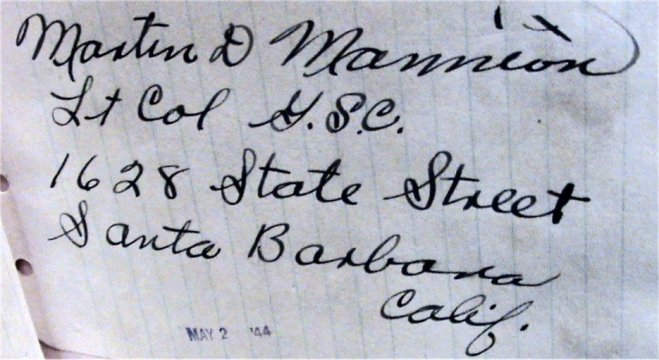 Martin D Mannion
Lt Col G.S.C.
1628 State Street
Santa Barbara
Calif.
MAY 2 '44